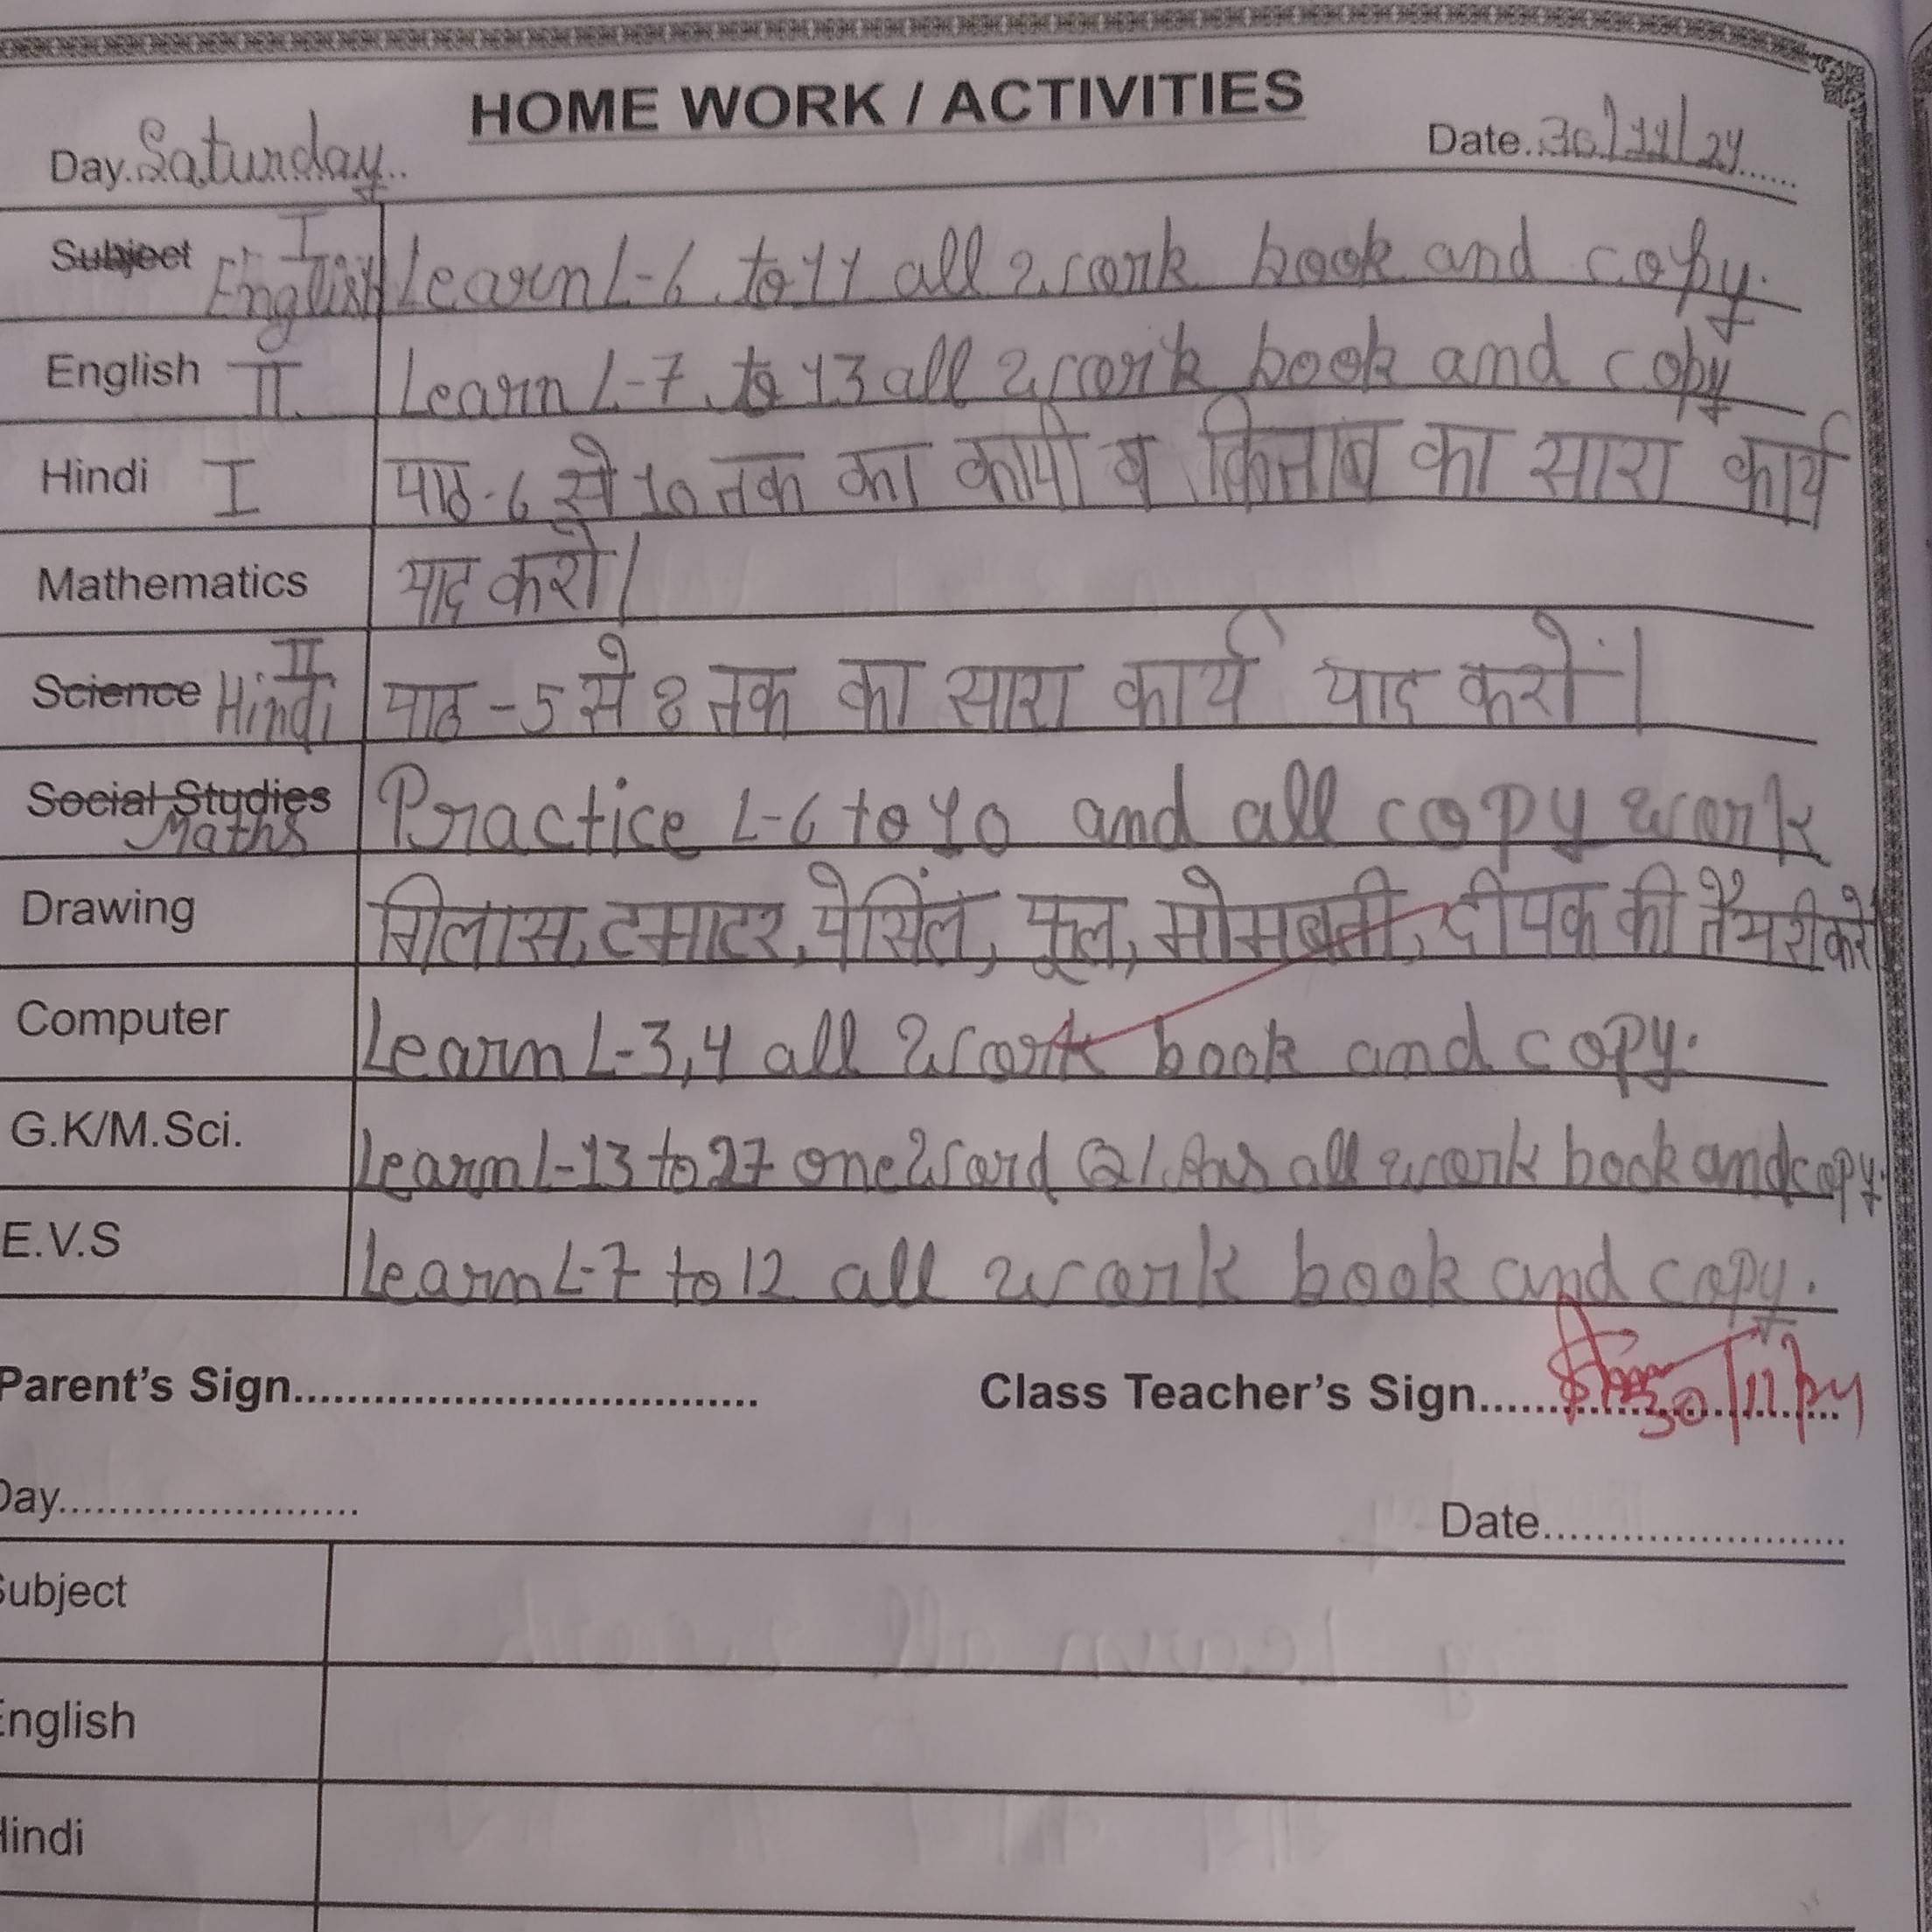 HOME WORK / ACTIVITIES
Day. Saturday.. Date..30/11/24......
Subject English I Learn L-6 to 11 all work book and copy.
English II Learn L-7 to 13 all work book and copy
Hindi I पाठ-6 से 10 तक का कापी व किताब का सारा कार्य
Mathematics याद करो।
Science Hindi II पाठ-5 से 8 तक का सारा कार्य याद करो।
Social Studies Maths Practice L-6 to 10 and all copy work
Drawing गिलास, टमाटर, पेसिंल, फूल, मोमबती, दीपक की तैयरी करे
Computer Learn L-3,4 all work book and copy.
G.K/M.Sci. Learn L-13 to 27 one word Q/Ans all work book and copy.
E.V.S Learn L-7 to 12 all work book and copy.
Parent's Sign.................................. Class Teacher's Sign........ 30/11/24
Day........................ Date........................
Subject
English
Hindi